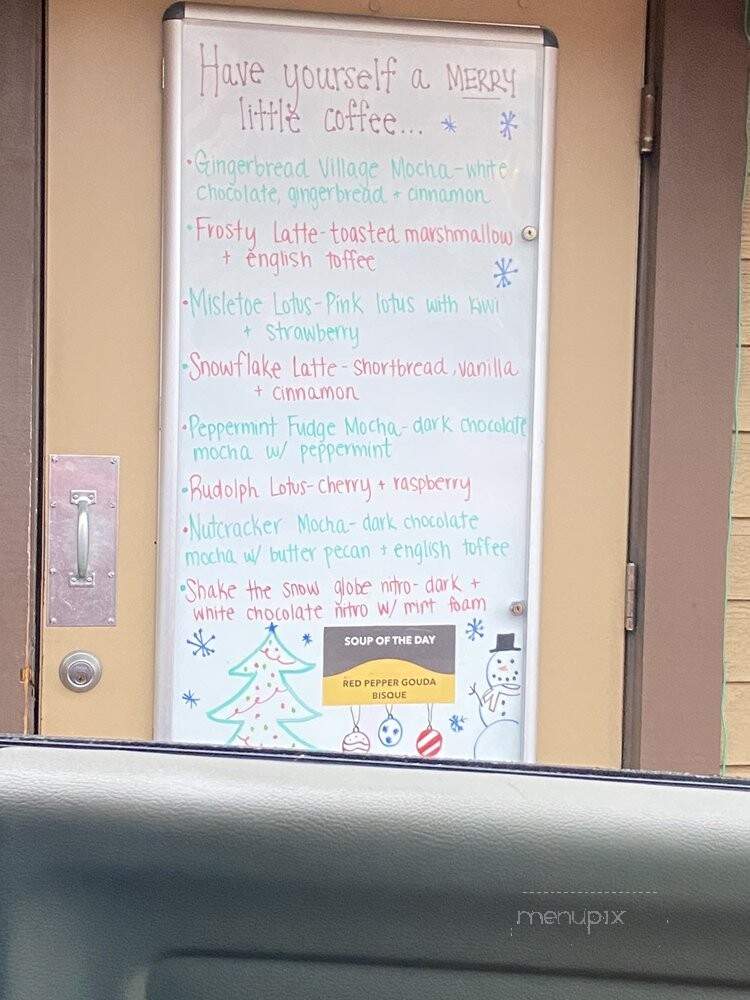 Have yourself a MERRY
little coffee...
• Gingerbread Village Mocha - white
chocolate, gingerbread + cinnamon
• Frosty Latte - toasted marshmallow
+ english toffee
• Misletoe Lotus - Pink lotus with kiwi
+ strawberry
• Snowflake Latte - shortbread, vanilla
+ cinnamon
• Peppermint Fudge Mocha - dark chocolate
mocha w/ peppermint
• Rudolph Lotus - cherry + raspberry
• Nutcracker Mocha - dark chocolate
mocha w/ butter pecan + english toffee
• Shake the snow globe nitro - dark +
white chocolate nitro w/ mint foam
SOUP OF THE DAY
RED PEPPER GOUDA
BISQUE
menupix